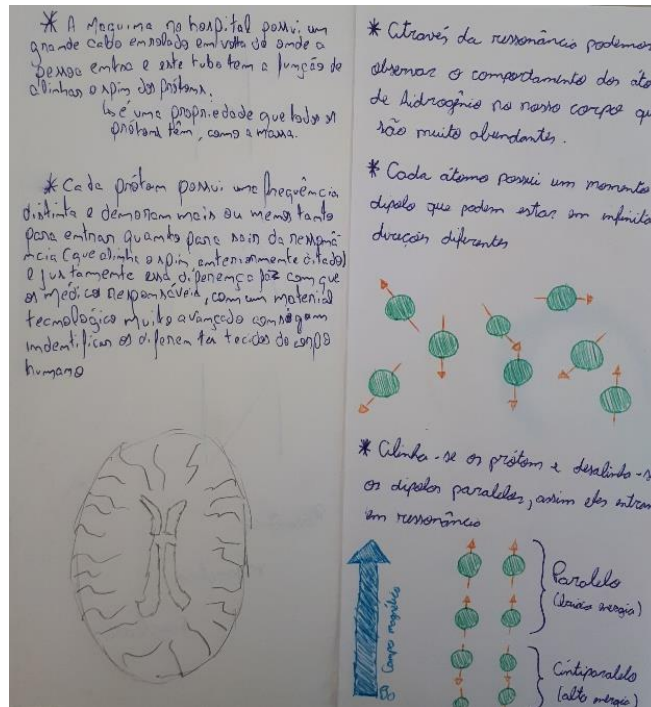 * A Maquina no hospital possui um
grande cabo enrolado em volta de onde a
pessoa entra e este tubo tem a função de
alinhar o spin dos prótons.
é uma propriedade que todos os
prótons têm, como a massa.
* Cada próton possui uma frequência
distinta e demoram mais ou menos tanto
para entrar quanto para sair da ressonâ-
ncia (que alinha o spin, anteriormente citado)
e justamente essa diferença faz com que
os médicos responsáveis, com um material
tecnologico muito avançado consigam
indentificar os diferentes tecidos do corpo
humano
* Através da ressonância podemos
observar o comportamento dos áto
de hidrogênio no nosso corpo qu
são muito abundantes.
* Cada átomo possui um momento
dipolo que podem estar em infinita
direções diferentes
* Alinha-se os prótons e desalinha-s
os dipolos paralelos, assim eles entram
em ressonância
Campo magnético
B0
Paralelo
(baixa energia)
Antiparalelo
(alta energia)